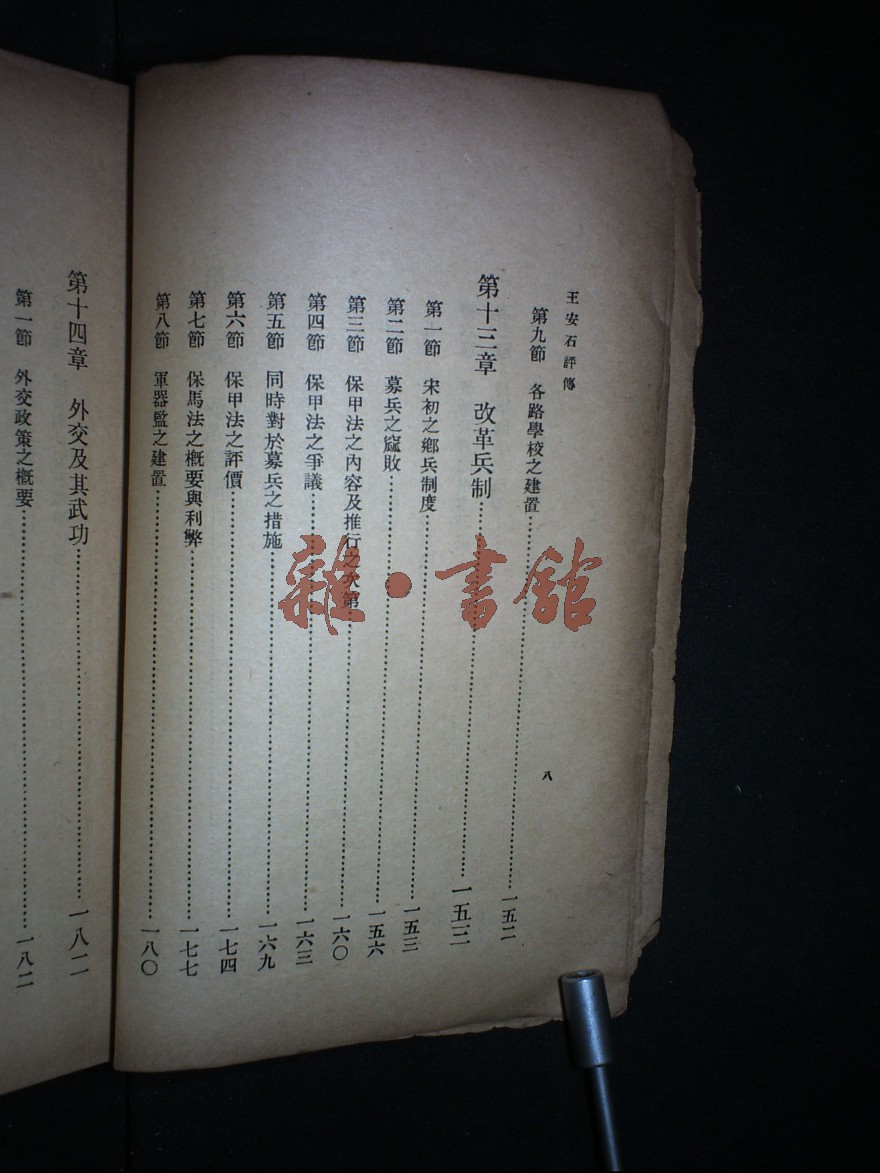 王安石評傳
八
第九節 各路學校之建置 一五二
第十三章 改革兵制 一五三
第一節 宋初之鄉兵制度 一五三
第二節 募兵之窳敗 一五六
第三節 保甲法之內容及推行之次第 一六〇
第四節 保甲法之爭議 一六三
第五節 同時對於募兵之措施 一六九
第六節 保甲法之評價 一七四
第七節 保馬法之概要與利弊 一七七
第八節 軍器監之建置 一八〇
第十四章 外交及其武功 一八二
第一節 外交政策之概要 一八二
雜·書館